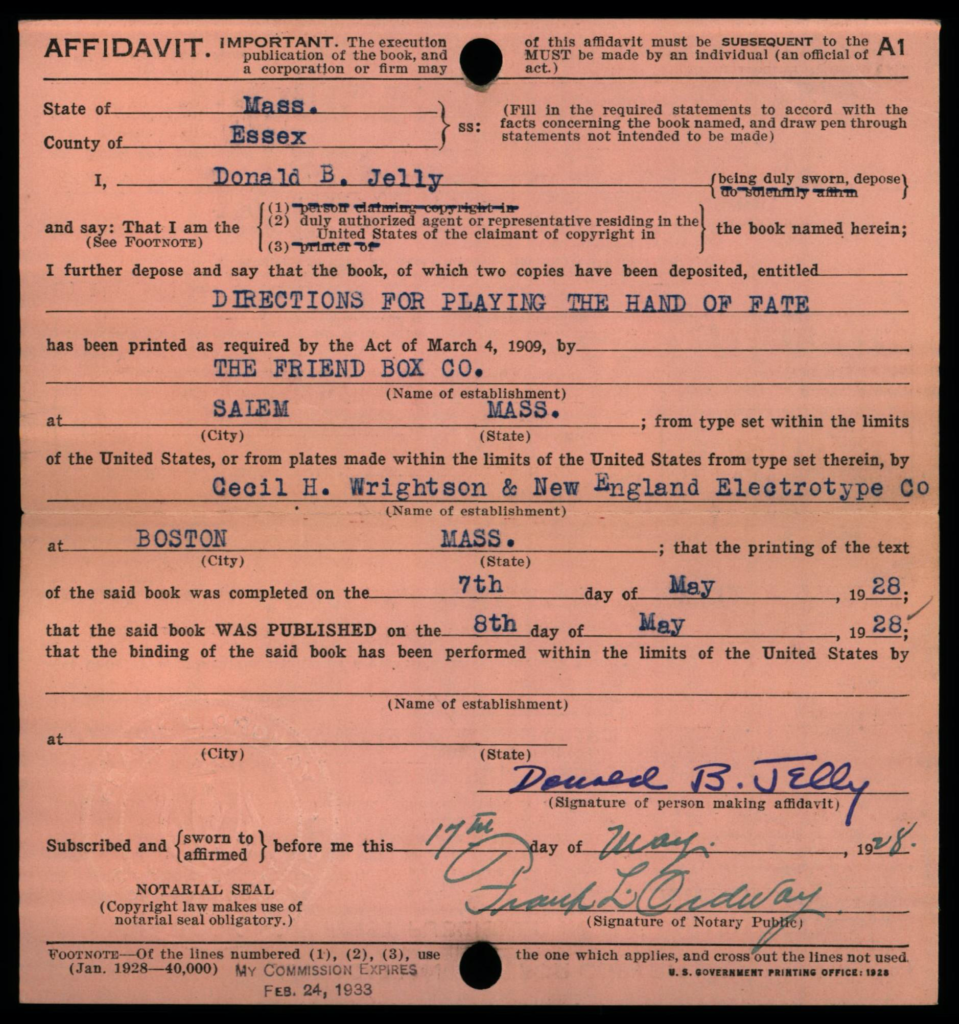 AFFIDAVIT. IMPORTANT. The execution of this affidavit must be SUBSEQUENT to the A1
publication of the book, and MUST be made by an individual (an official of
a corporation or firm may act.)
State of Mass.
County of Essex
ss:
(Fill in the required statements to accord with the
facts concerning the book named, and draw pen through
statements not intended to be made)
I, Donald B. Jelly {being duly sworn, depose}
do solemnly affirm
and say: That I am the
(See FOOTNOTE)
(1) person claiming copyright in
(2) duly authorized agent or representative residing in the
United States of the claimant of copyright in
(3) printer of
the book named herein;
I further depose and say that the book, of which two copies have been deposited, entitled
DIRECTIONS FOR PLAYING THE HAND OF FATE
has been printed as required by the Act of March 4, 1909, by
THE FRIEND BOX CO.
(Name of establishment)
at SALEM MASS. ; from type set within the limits
(City) (State)
of the United States, or from plates made within the limits of the United States from type set therein, by
Cecil H. Wrightson & New England Electrotype Co
(Name of establishment)
at BOSTON MASS. ; that the printing of the text
(City) (State)
of the said book was completed on the 7th day of May, 1928;
that the said book WAS PUBLISHED on the 8th day of May, 1928;
that the binding of the said book has been performed within the limits of the United States by
(Name of establishment)
at
(City) (State)
Donald B. Jelly
(Signature of person making affidavit)
Subscribed and {sworn to affirmed} before me this 17th day of May, 1928.
NOTARIAL SEAL
(Copyright law makes use of
notarial seal obligatory.)
Frank L. Ordway
(Signature of Notary Public)
FOOTNOTE—Of the lines numbered (1), (2), (3), use the one which applies, and cross out the lines not used.
(Jan. 1928—40,000) MY COMMISSION EXPIRES U. S. GOVERNMENT PRINTING OFFICE: 1928
FEB. 24, 1933